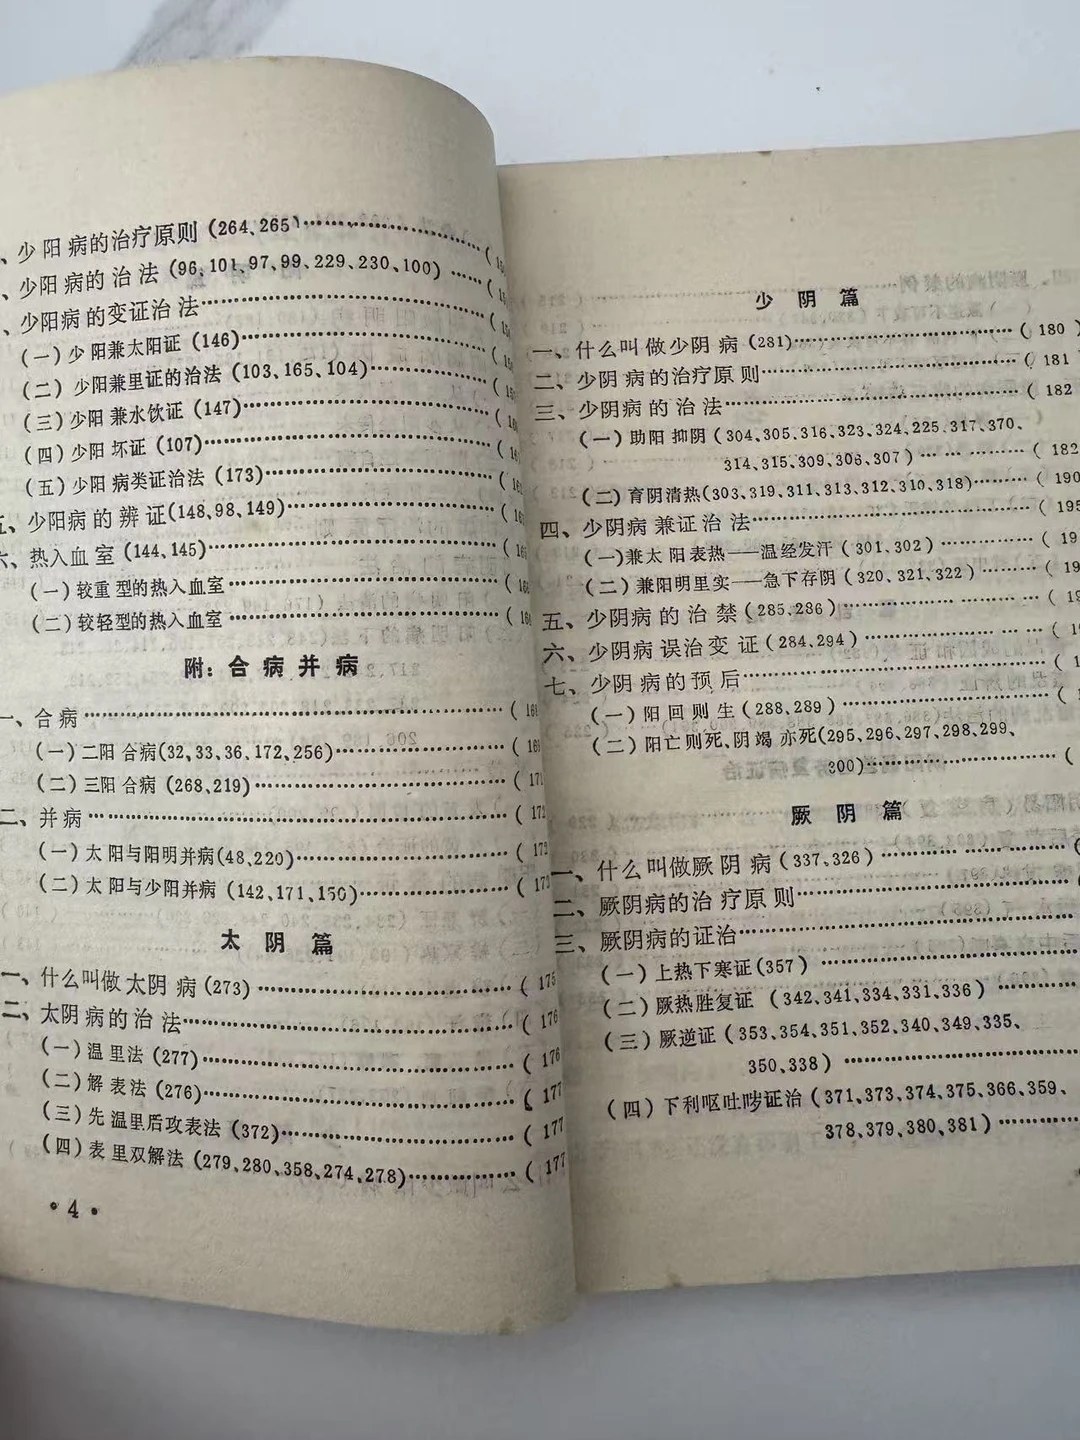 、少阳病的治疗原则(264、265)……(1
、少阳病的治法(96、101、97、99、229、230、100)……(1
、少阳病的变证治法……(1
(一)少阳兼太阳证(146)……(1
(二)少阳兼里证的治法(103、165、104)……(1
(三)少阳兼水饮证(147)……(1
(四)少阳坏证(107)……(1
(五)少阳病类证治法(173)……(1
五、少阳病的辨证(148、98、149)……(1
六、热入血室(144、145)……(1
(一)较重型的热入血室……(1
(二)较轻型的热入血室……(1
附：合病并病
一、合病……(1
(一)二阳合病(32、33、36、172、256)……(1
(二)三阳合病(268、219)……(171
二、并病……(172
(一)太阳与阳明并病(48、220)……(172
(二)太阳与少阳并病(142、171、150)……(17
太阴篇
一、什么叫做太阴病(273)……(175
二、太阴病的治法……(176
(一)温里法(277)……(176
(二)解表法(276)……(177
(三)先温里后攻表法(372)……(177
(四)表里双解法(279、280、358、274、278)……(177
·4·
少阴篇
一、什么叫做少阴病(281)……(180)
二、少阴病的治疗原则……(181)
三、少阴病的治法……(182
(一)助阳抑阴(304、305、316、323、324、225、317、370、
314、315、309、306、307)……(182
(二)育阴清热(303、319、311、313、312、310、318)……(190
四、少阴病兼证治法……(195
(一)兼太阳表热——温经发汗(301、302)……(19
(二)兼阳明里实——急下存阴(320、321、322)……(19
五、少阴病的治禁(285、286)……(19
六、少阴病误治变证(284、294)……(1
七、少阴病的预后……(1
(一)阳回则生(288、289)……(1
(二)阳亡则死、阴竭亦死(295、296、297、298、299、
300)……(
厥阴篇
一、什么叫做厥阴病(337、326)……(
二、厥阴病的治疗原则……(
三、厥阴病的证治……
(一)上热下寒证(357)……
(二)厥热胜复证(342、341、334、331、336)……
(三)厥逆证(353、354、351、352、340、349、335、
350、338)……
(四)下利呕吐哕证治(371、373、374、375、366、359、
378、379、380、381)……